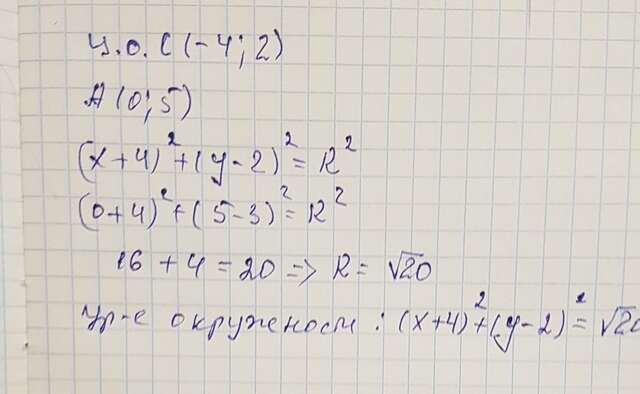 ц.о. C(-4; 2)
A(0; 5)
(x+4)²+(y-2)²=R²
(0+4)²+(5-3)²=R²
16+4=20 => R=√20
Ур-е окружност: (x+4)²+(y-2)²=√20